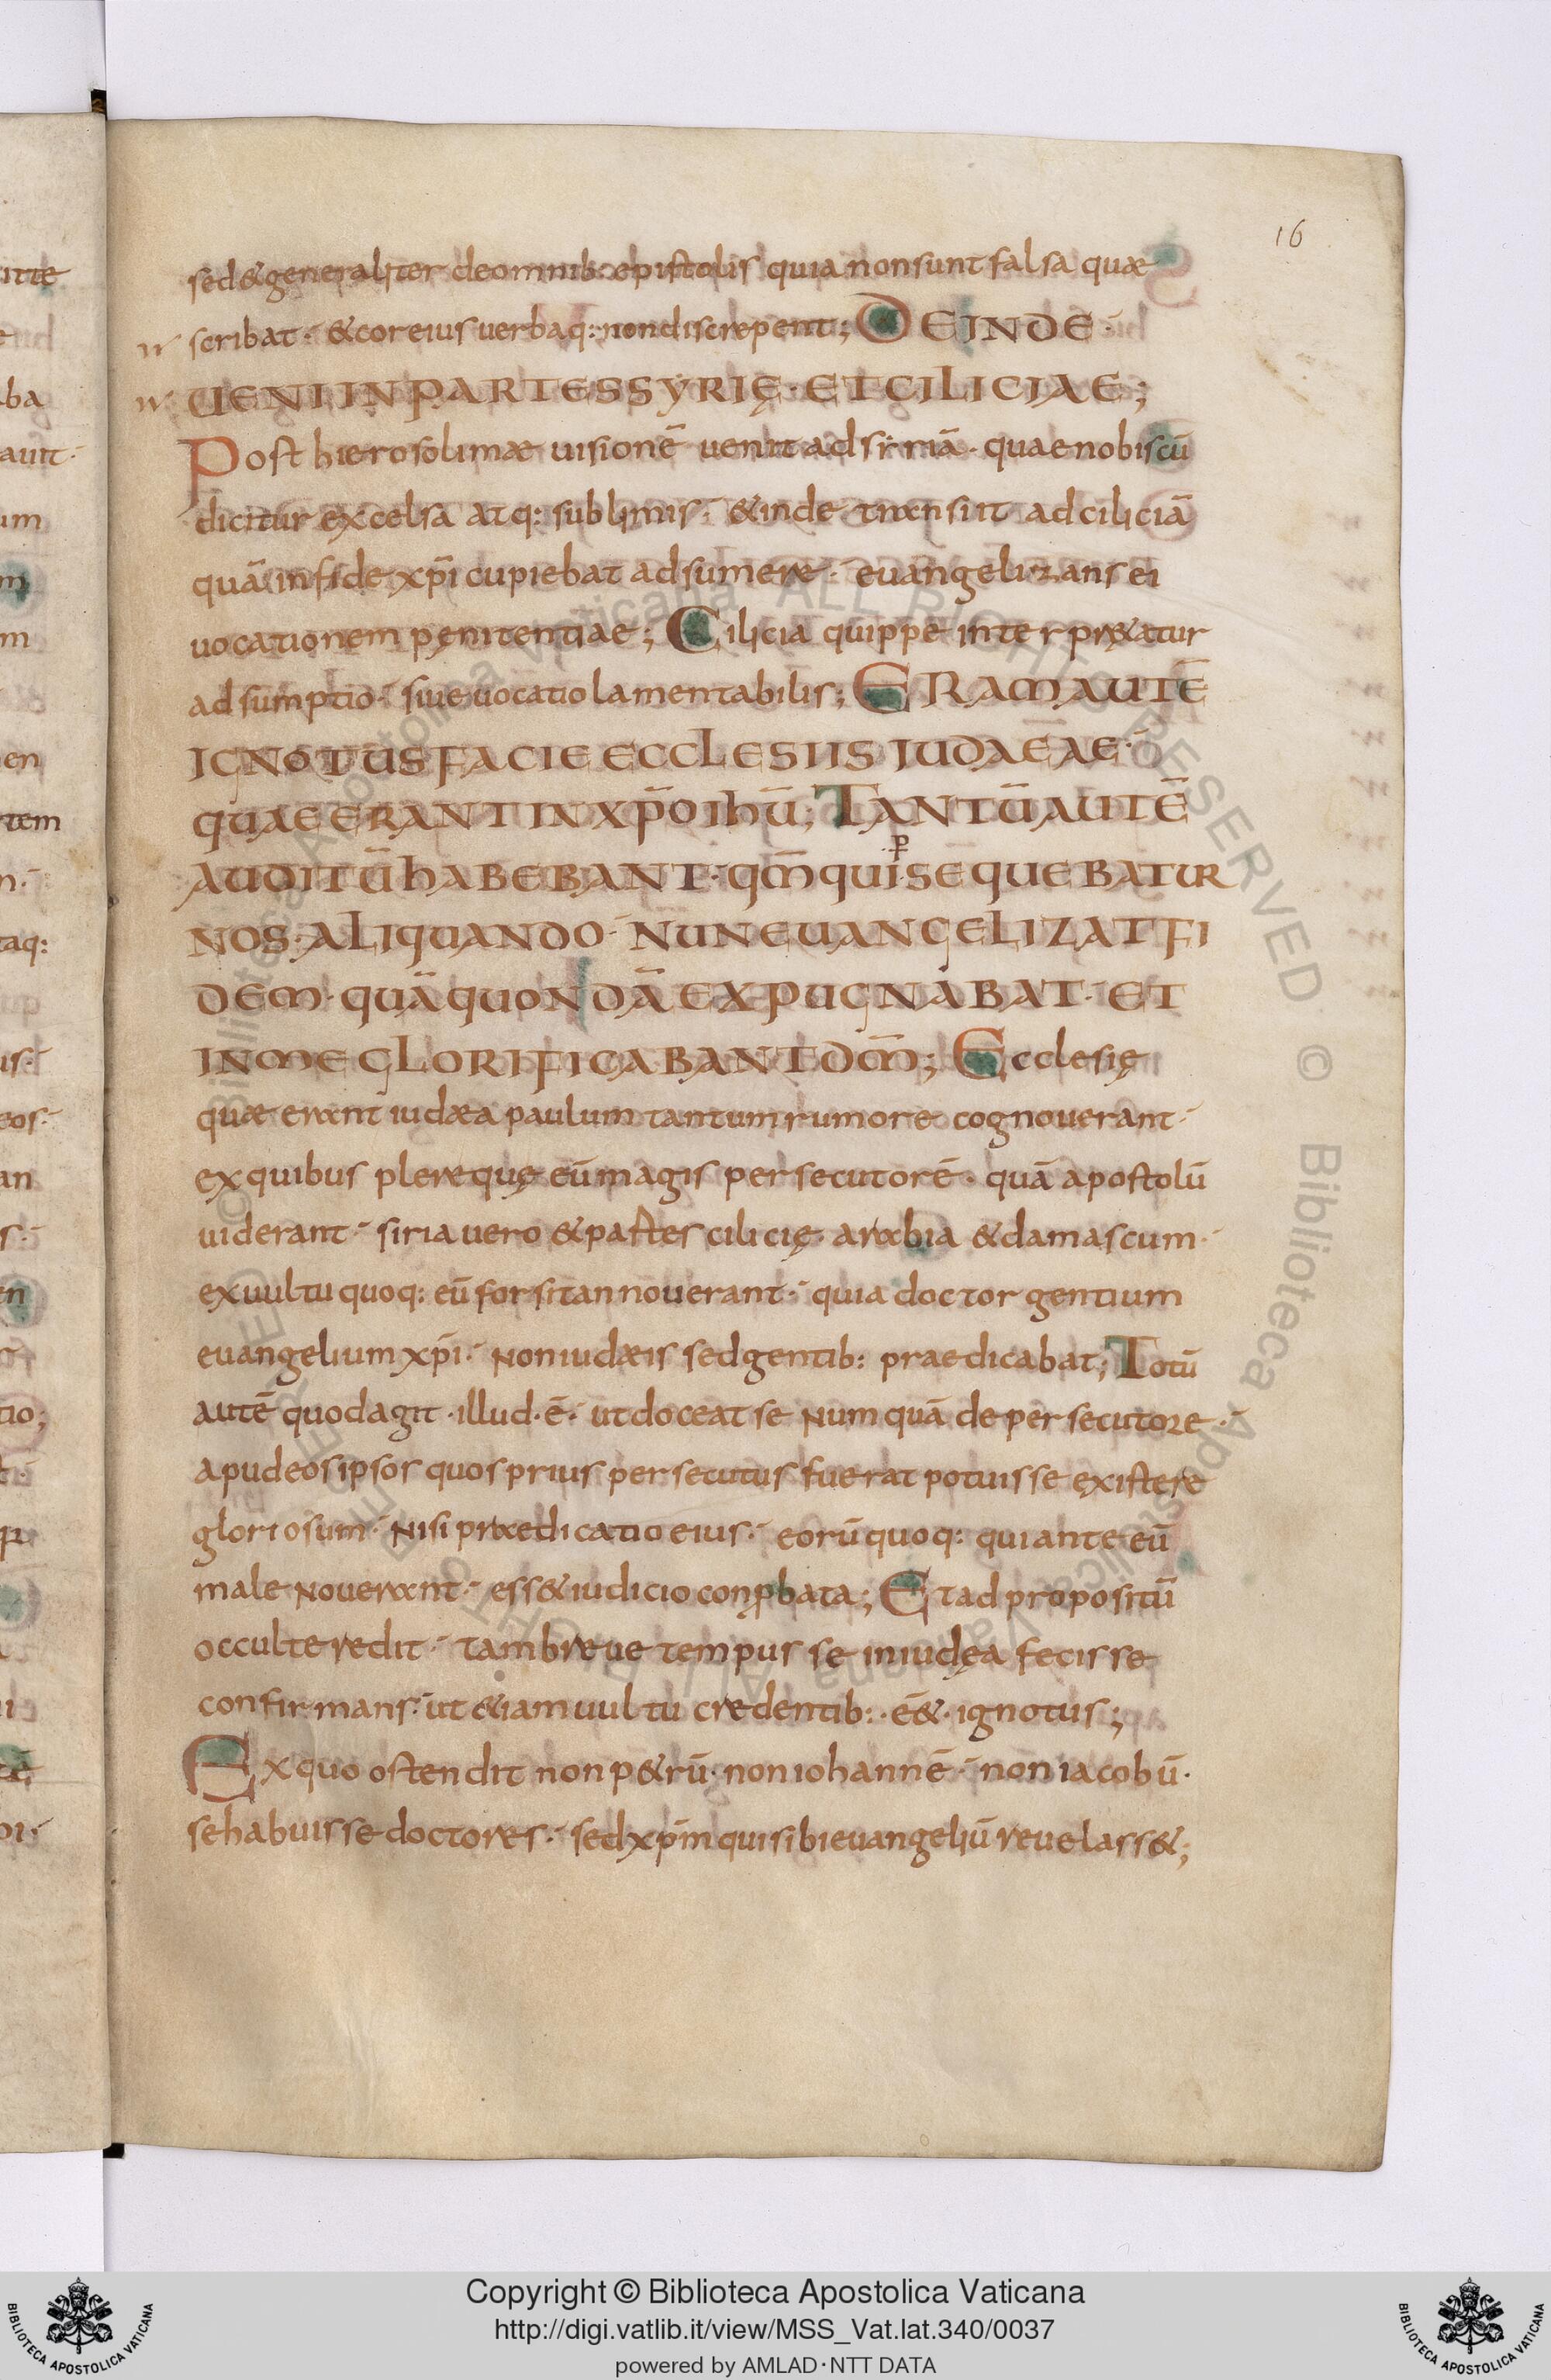 16
sed & generaliter deomnib: epistolis quia nonsunt falsa quæ
scribat · & cor eius verbaq: nondiscrepent; DEINDE ·
UENI IN PARTES SYRIĘ · ET CILICIAE;
Post hierosolimæ uisionē uenit ad siriā · quae nobiscū
dicitur excelsa atq: sublimis · & inde transiit ad ciliciā
quā in fide xp̄i cupiebat adsumere · euangelizans ei
uocationem pęnitentiae; Cilicia quippe interpr&atur
adsumptio · siue uocatio lamentabilis; ERAM AUTĒ
IGNOTUS FACIE ECCLESIIS IUDAEAE ·
QUAE ERANT IN XP̄O IHŪ; TANTŪ AUTĒ
AUDITŪ HABEBANT · QM̄ QUI ꝑSEQUEBATUR
NOS · ALIQUANDO · NUN EUANGELIZAT FI
DEM · QUĀ QUONDĀ EXPUGNABAT · ET
IN ME GLORIFICABANT DM̄; Ecclesię
quæ erant iudæa paulum tantum rumore cognouerant ·
ex quibus plerequę eū magis persecutorē · quā apostolū
uiderant · siria uero & partes cilicię · arabia & damascum ·
ex uultu quoq: eū forsitan nouerant · quia doctor gentium
euangelium xp̄i · non iudæis sed gentib: praedicabat; Totū
autē quod agit · illud · ē · ut doceat se numquā de persecutore ·
apud eos ipsos quos prius persecutus fuerat potuisse existere
gloriosum · nisi praedicatio eius · eorū quoq: qui ante eū
male nouerant · ess& iudicio conꝓbata; Et ad propositū
occulte redit · tam breue tempus se in iudęa fecisse
confirmans · ut &iam uultu credentib: · ē& · ignotus;
Ex quo ostendit non p&rū · non iohannē · non iacobū ·
se habuisse doctores · sed xp̄m qui sibi euangeliū reuelass&;
Copyright © Biblioteca Apostolica Vaticana
http://digi.vatlib.it/view/MSS_Vat.lat.340/0037
powered by AMLAD·NTT DATA
BIBLIOTECA APOSTOLICA VATICANA
BIBLIOTECA APOSTOLICA VATICANA